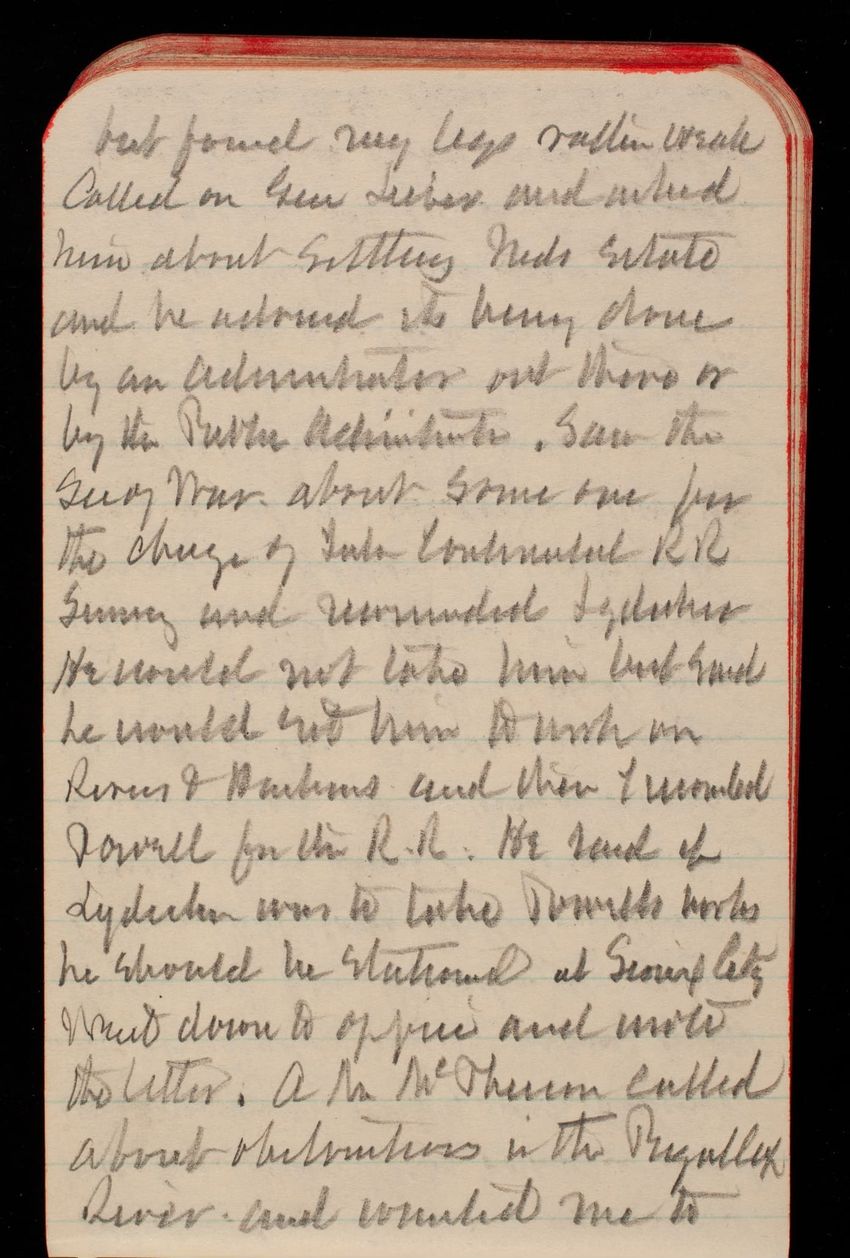 but found my legs rather weak
Called on Gen Lieber and asked
him about settling Neds Estate
and he advised its being done
by an administrator out there or
by the Public Administrator. Saw the
Secy War about some one for
the charge of Inter Continental RR
Survey and recommended Lydecker
He would not take him but said
he would set him to work on
Rivers & Harbors and then I recomded
Powell for the R.R. He said if
Lydecker was to take Powells works
he should be stationed at Sioux City
Went down to office and wrote
the letter. A Mr McPherson called
about obstructions in the Puyallup
River and wanted me to